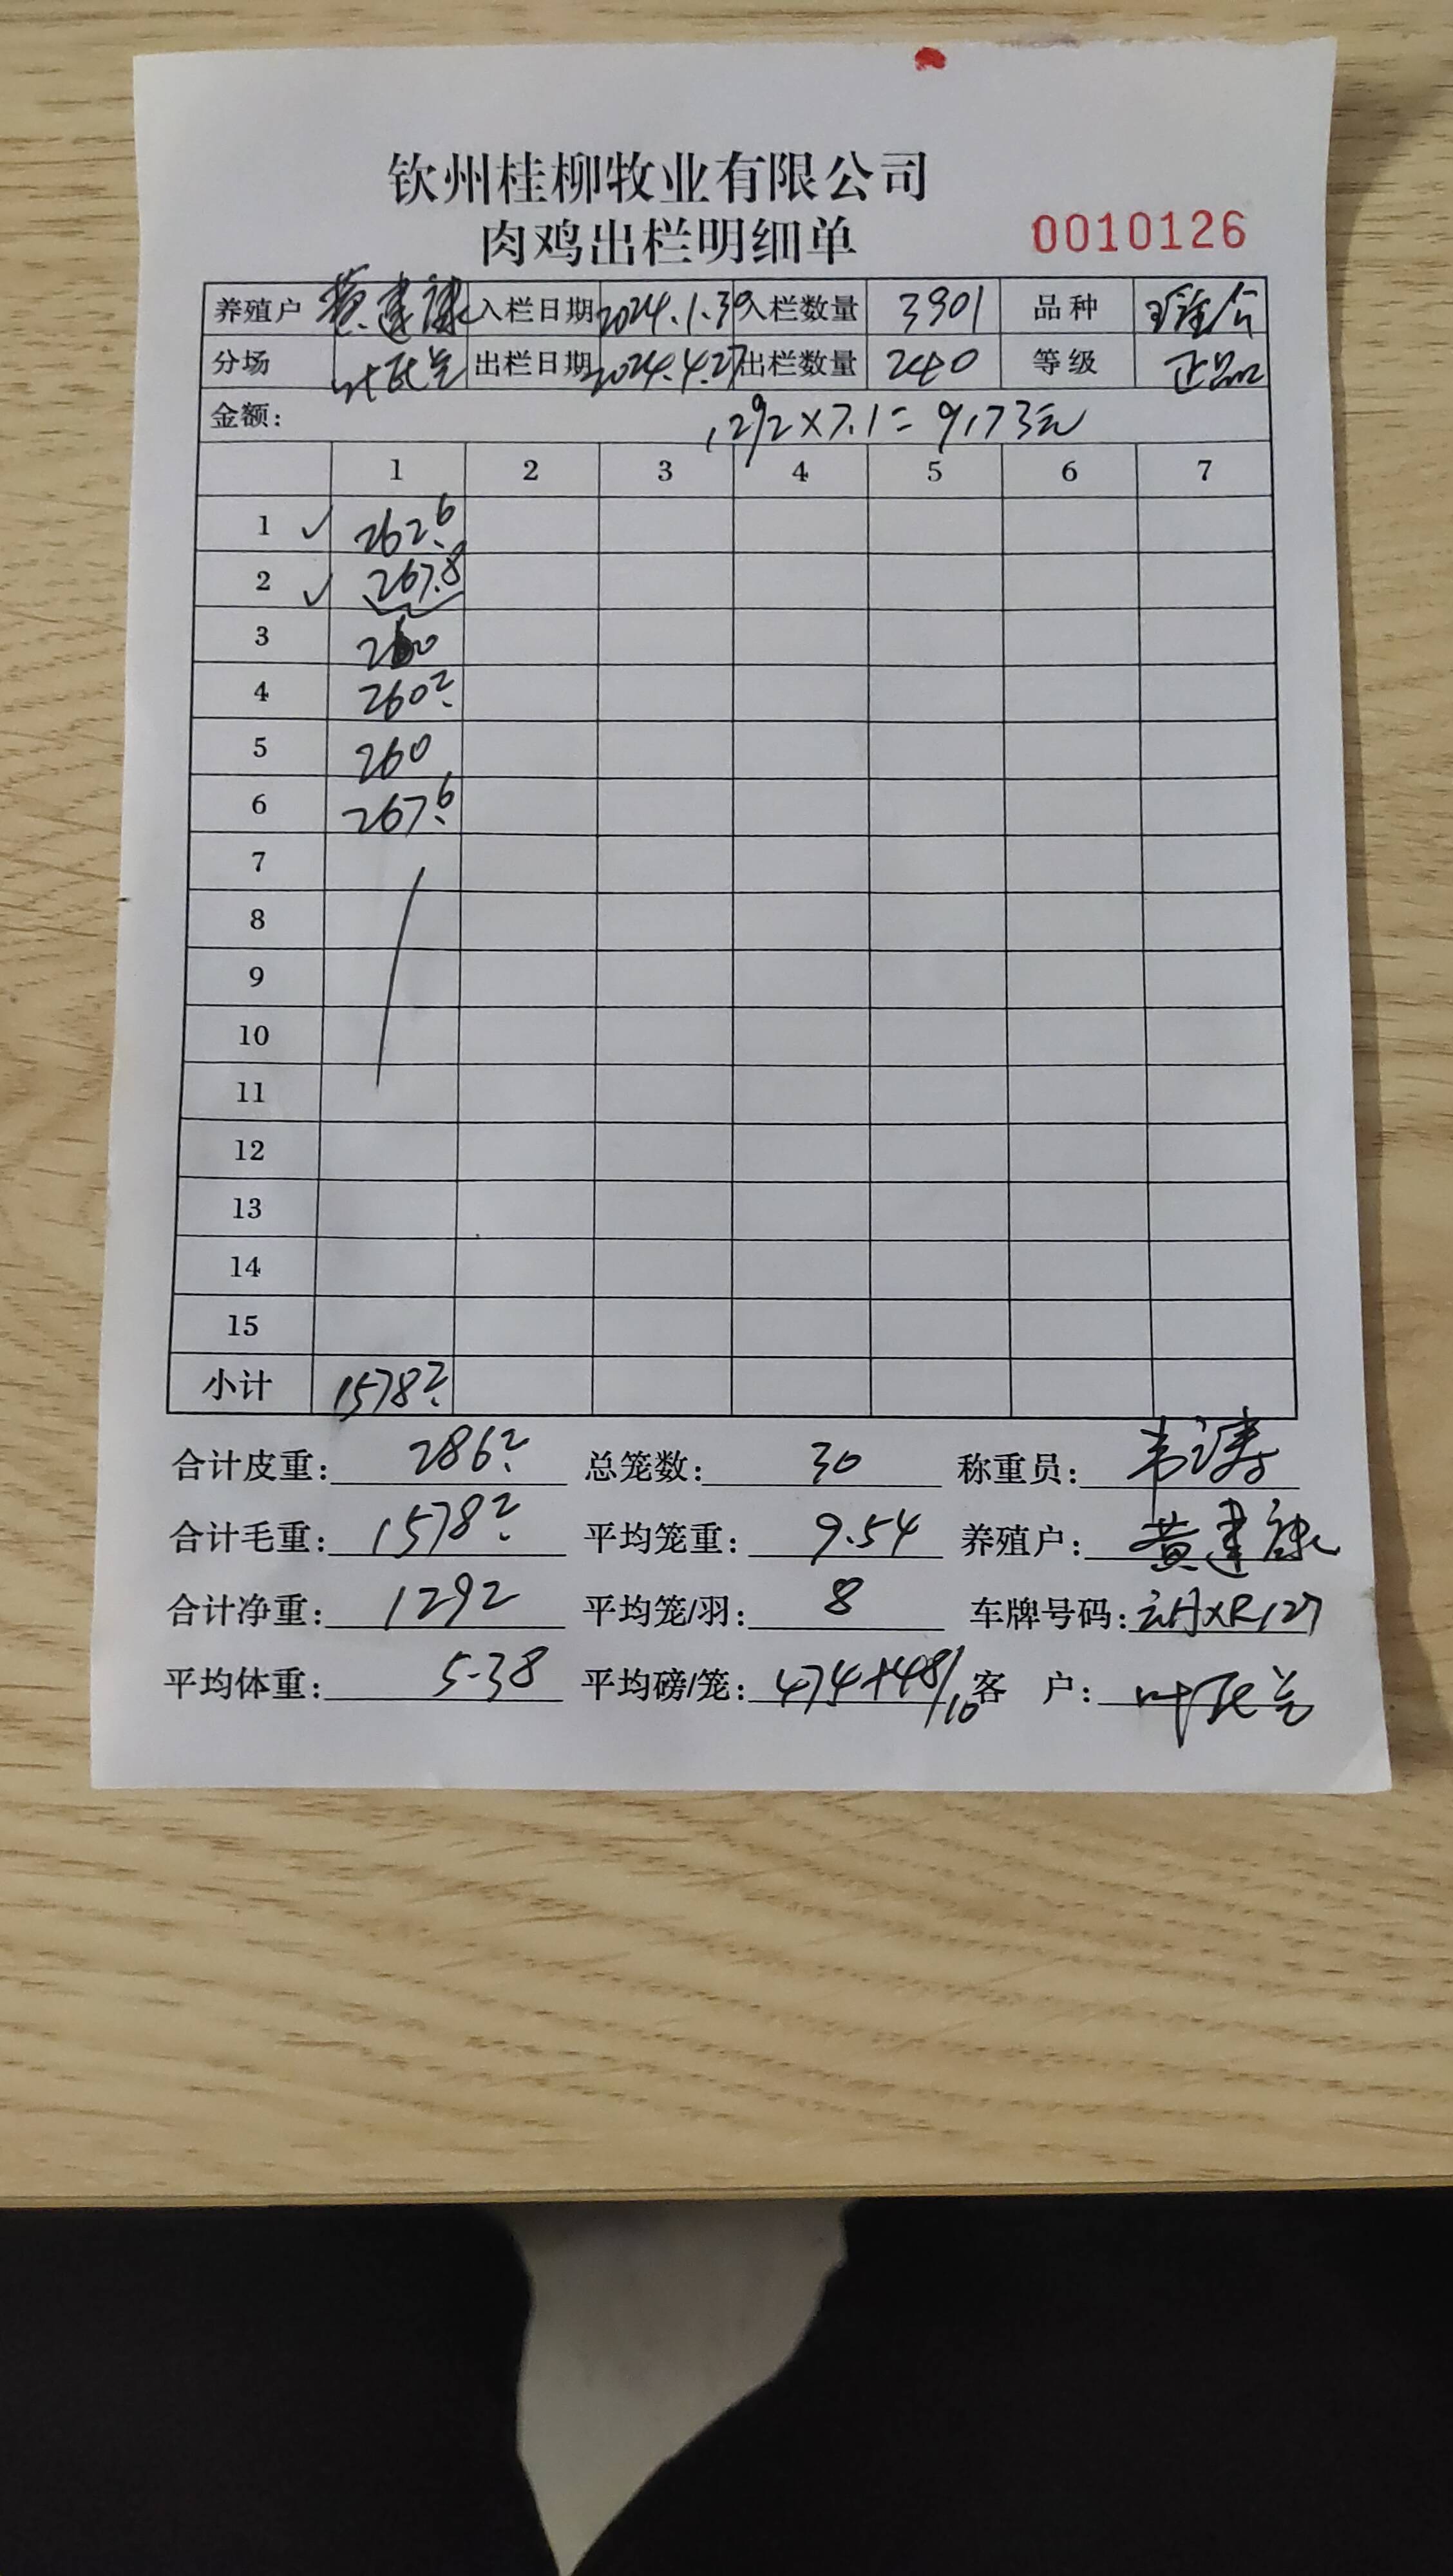 钦州桂柳牧业有限公司
肉鸡出栏明细单 0010126
养殖户 黄建康 入栏日期 2024.1.30 入栏数量 3901 品种
分场 叶民兰 出栏日期 2024.4.27 出栏数量 240 等级 正品
金额: 1292×7.1=9173元
1 2 3 4 5 6 7
1 ✓ 262.6
2 ✓ 267.8
3 260
4 260.2
5 260
6 267.6
7
8
9
10
11
12
13
14
15
小计 1578.2
合计皮重: 286.2 总笼数: 30 称重员: 韦涛
合计毛重: 1578.2 平均笼重: 9.54 养殖户: 黄建康
合计净重: 1292 平均笼/羽: 8 车牌号码: XR127
平均体重: 5.38 平均磅/笼: 474+48/10 客 户: 叶民兰